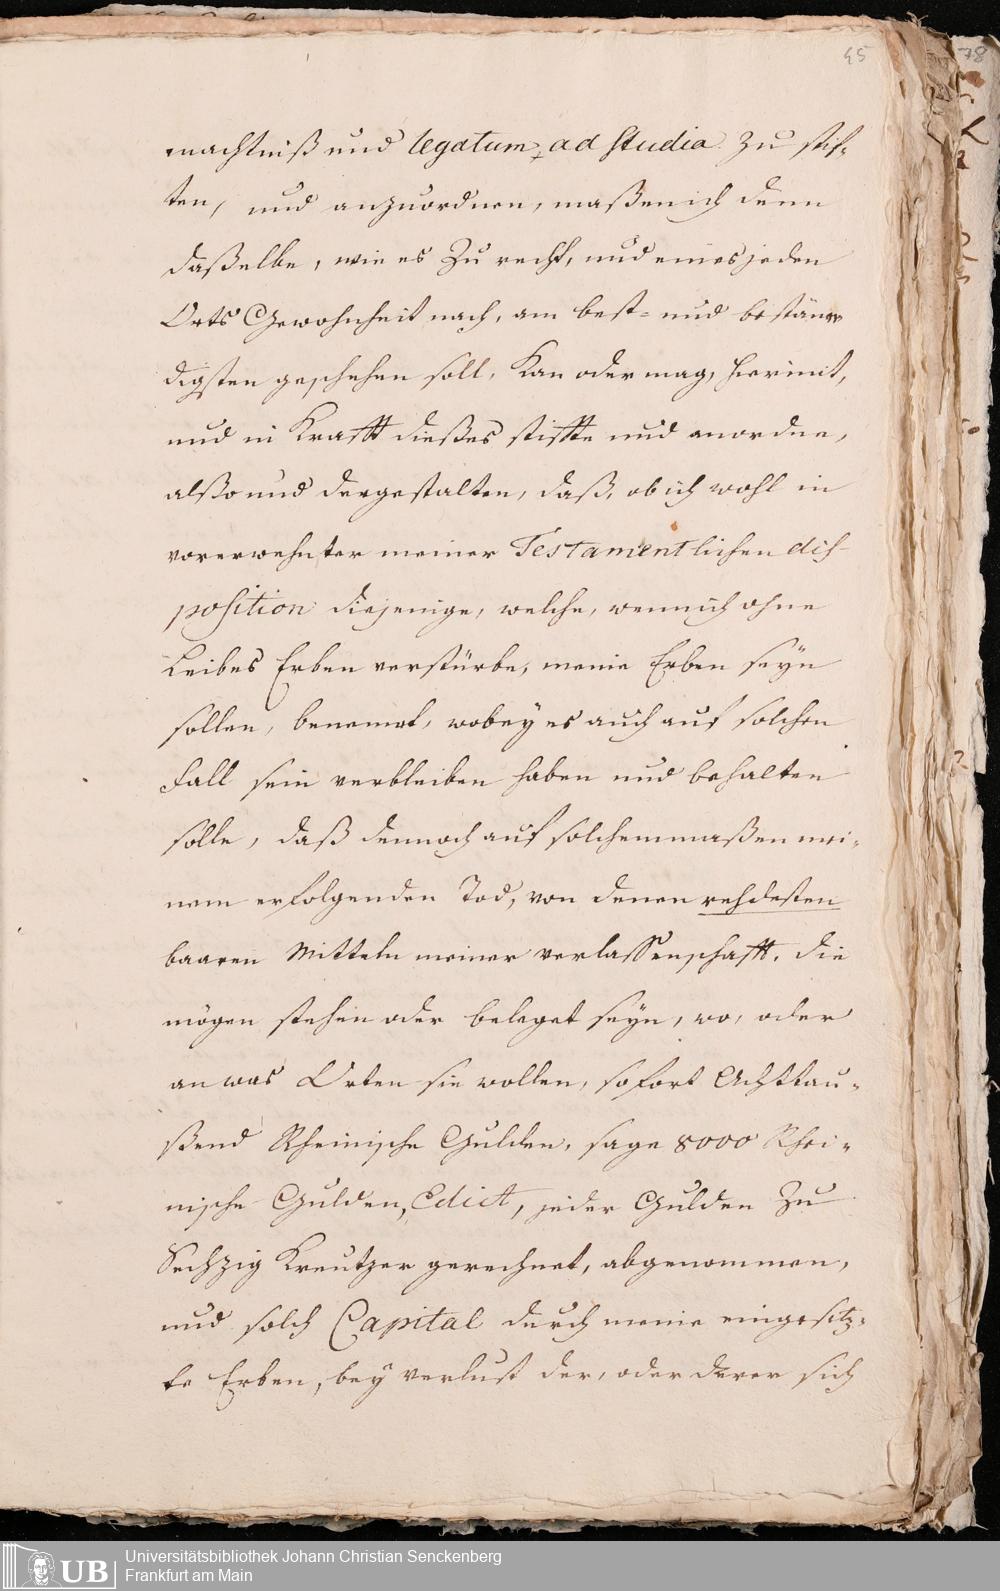 45
78
machtniß und legatum, ad Studia zu stif-
ten, und anzuordnen, maßen ich denn
daßelbe, wie es zu recht, und eines jeden
Orts Gewohnheit nach, am best- und bestän-
digsten geschehen soll, kan oder mag, hiermit,
und in Krafft dießes stiffte und anordne,
alßo und dergestalten, daß, ob ich wohl in
vorerwehnter meiner Testamentlichen dis-
position diejenige, welche, wenn ich ohne
Leibes Erben verstürbe, meine Erben seyn
sollen, benennt, wobey es auch auf solchen
Fall sein verbleiben haben und behalten
solle, daß dennoch auf solchemmaßen mei-
nem erfolgenden Tod, von denen rehdesten
baaren Mitteln meiner verlassenschafft, die
mögen stehen oder beleget seyn, wo, oder
an was Orten sie wollen, sofort Achttau-
ßend Rheinische Gulden, sage 8000 Rhei-
nische Gulden, Edict, jeder Gulden zu
Sechzig Kreutzer gerechnet, abgenommen,
und solch Capital durch meine eingesetz-
te Erben, bey verlust der, oder derer sich
Universitätsbibliothek Johann Christian Senckenberg
UB Frankfurt am Main